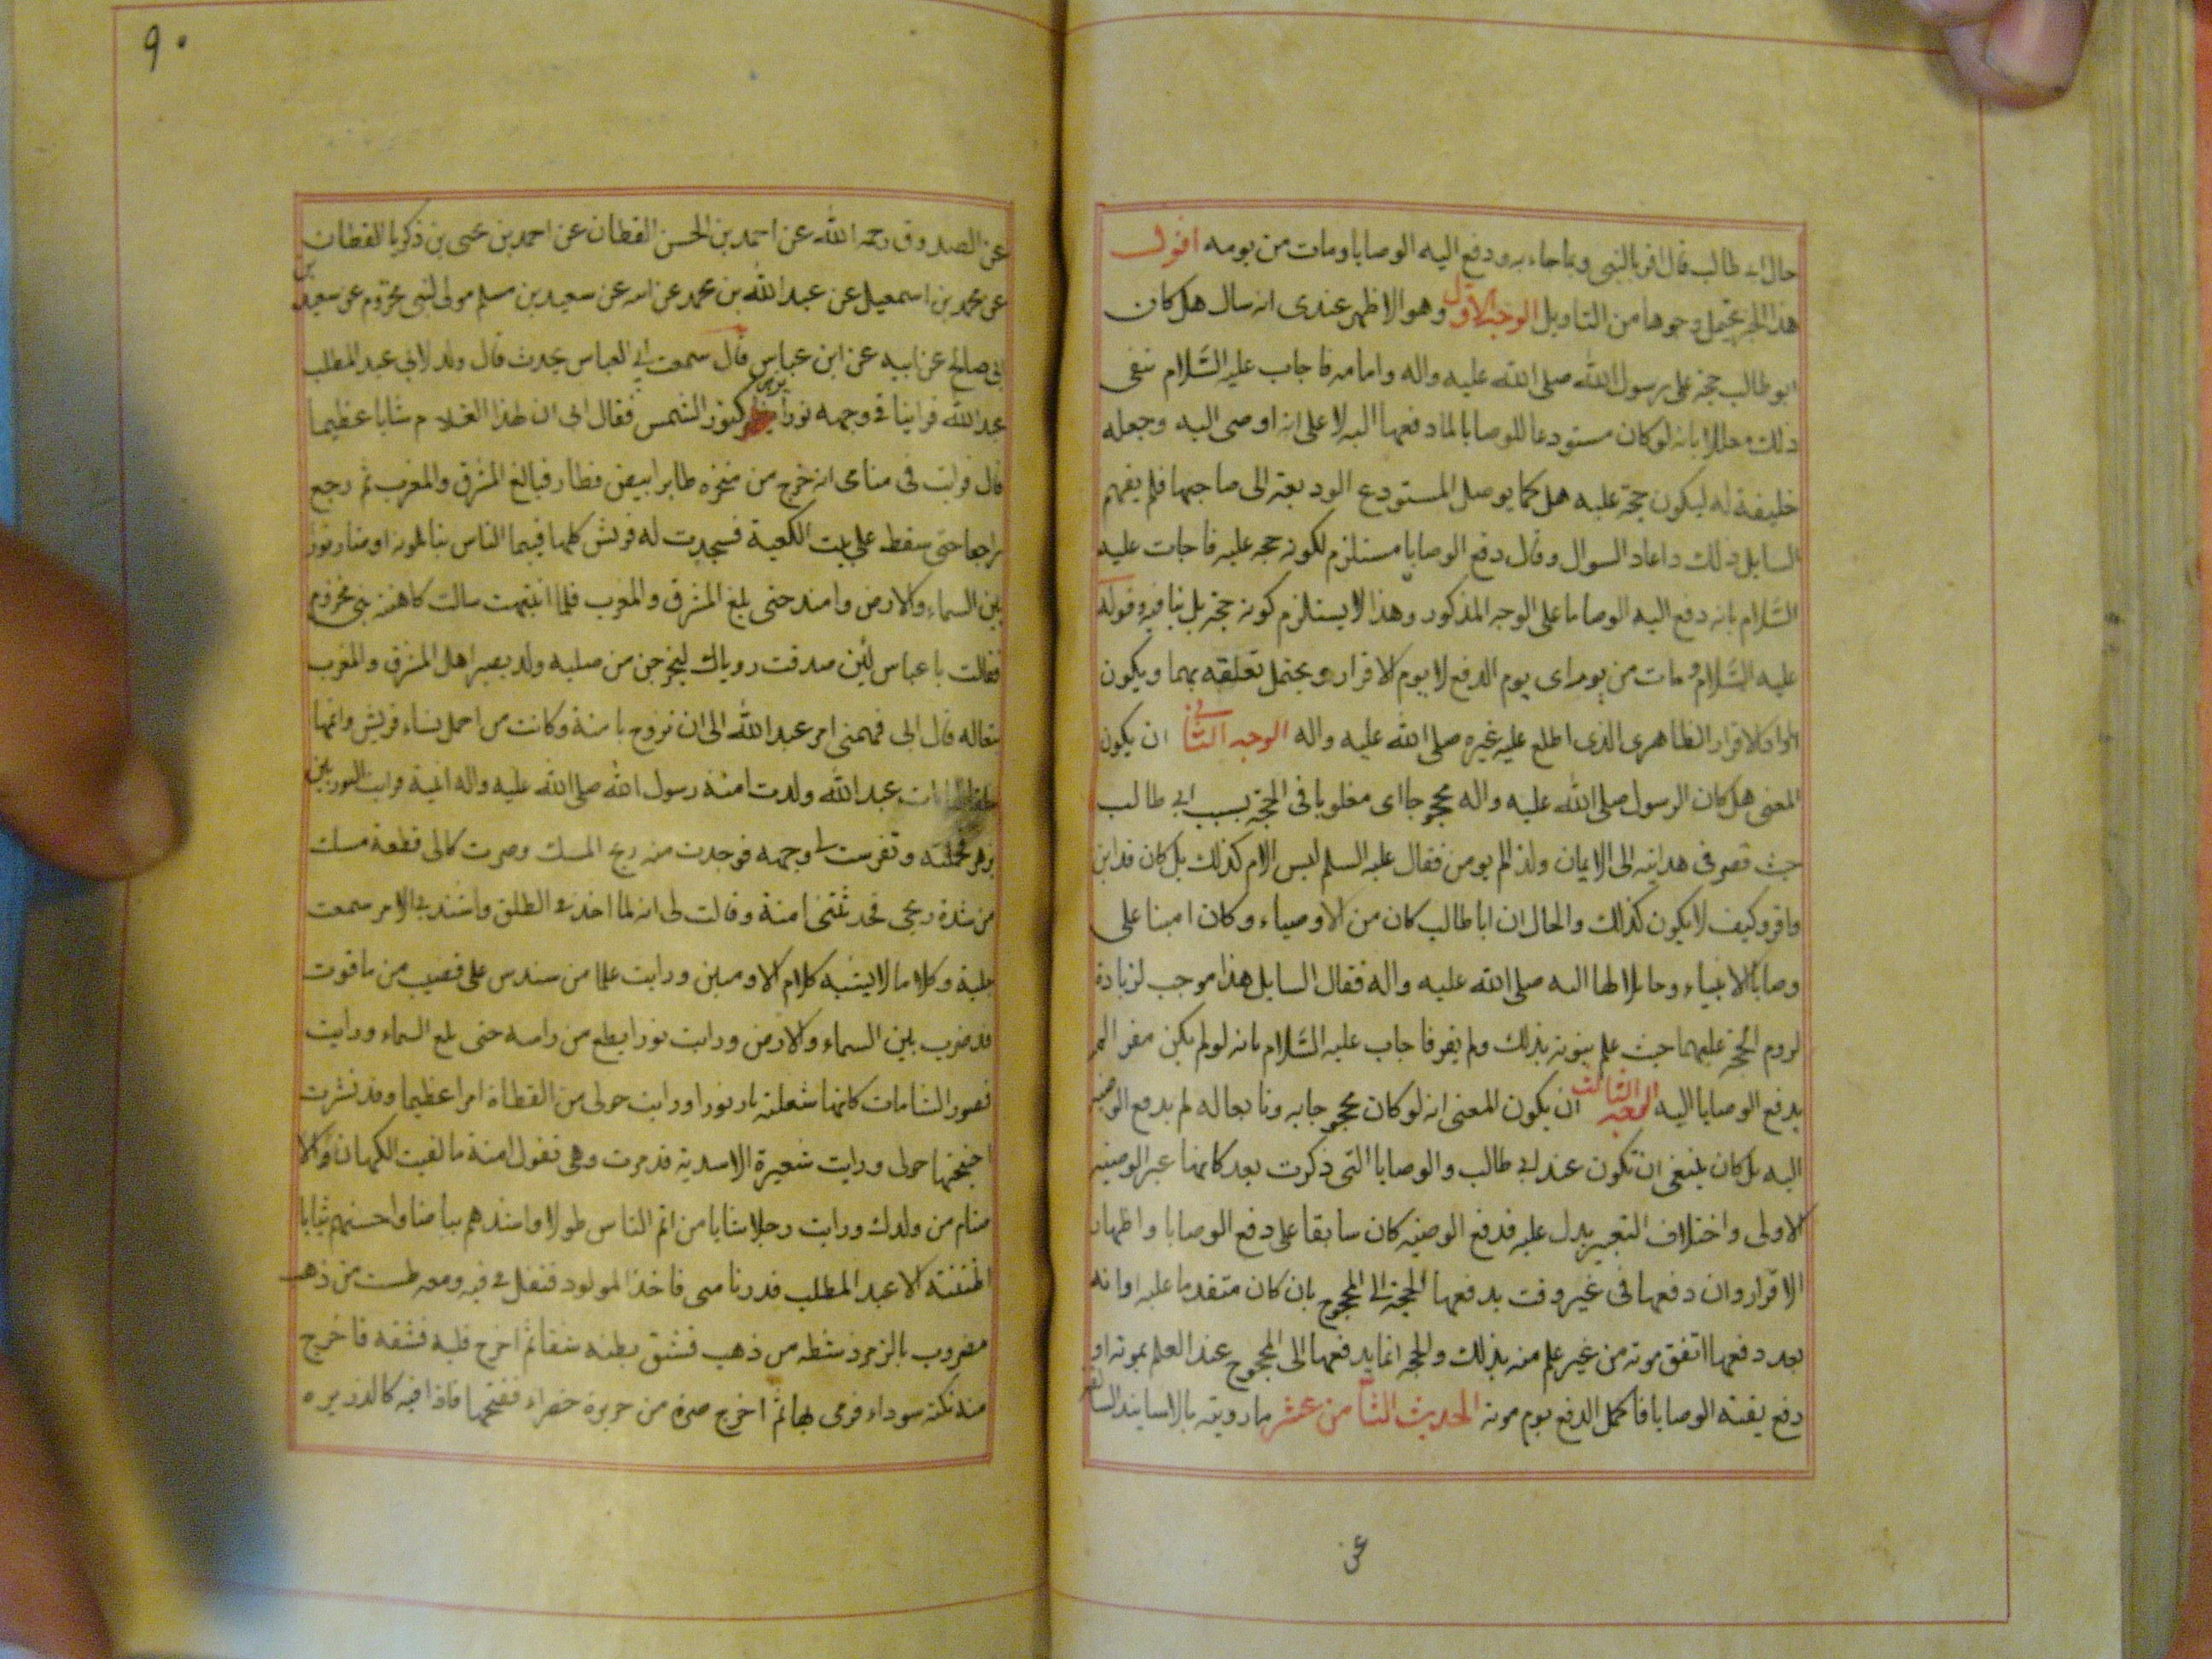 حال ابى طالب قال اقر بالنبى وبما جاء به ودفع اليه الوصايا ومات من يومه اقول
هذا الخبر يحتمل وجوها من التاويل الوجه الاول وهو الاظهر عندى انه سال هل كان
ابو طالب حجة على رسول الله صلى الله عليه واله واماما له فاجاب عليه السلام بنفى
ذلك معللا بانه لو كان مستودعا للوصايا لما دفعها اليه لا على انه اوصى اليه وجعله
خليفة له ليكون حجة عليه هل كما يوصل المستودع الوديعة الى صاحبها فلم يفهم
السايل ذلك واعاد السوال وقال دفع الوصايا مستلزم لكونه حجة عليه فاجاب عليه
السلام بانه دفع اليه الوصايا على الوجه المذكور وهذا لا يستلزم كونه حجة بل ينافيه وقوله
عليه السلام ومات من يومه اى يوم الدفع لا يوم الاقرار ويحتمل تعلقه بهما ويكون
الاقرار الظاهرى الذى اطلع عليه غيره صلى الله عليه واله الوجه الثانى ان يكون
المعنى هل كان الرسول صلى الله عليه واله محجوجا اى مغلوبا فى الحجة بسبب ابى طالب
حيث قصر فى هدايته الى الايمان ولذا لم يومن فقال عليه السلم ليس الامر كذلك بل كان قد امن
واقر وكيف لا يكون كذلك والحال ان ابا طالب كان من الاوصياء وكان امينا على
وصايا الانبياء وحاملا لها اليه صلى الله عليه واله فقال السايل هذا موجب لزيادة
لزوم الحجة عليهما حيث علم بنبوته بذلك ولم يقر فاجاب عليه السلام بانه لو لم يكن مقرا لم
يدفع الوصايا اليه الوجه الثالث ان يكون المعنى انه لو كان محجوجا به وتابعا له لم يدفع الوصية
اليه بل كان ينبغى ان تكون عند ابى طالب والوصايا التى ذكرت بعد كانها غير الوصية
الاولى واختلاف التعبير يدل عليه فدفع الوصية كان سابقا على دفع الوصايا واظهار
الاقرار وان دفعها فى غير وقت يدفعها الحجة الى المحجوج بان كان متقدما عليه او انه
بعد دفعها اتفق موته من غير علم منه بذلك والحجة انما يدفعها الى المحجوج عند العلم بموته او
دفع بقية الوصايا فاكمل الدفع يوم موته الحديث الثامن عشر ما رويته بالاسانيد السالفة
عن
٩٠
عن الصدوق رحمه الله عن احمد بن الحسن القطان عن احمد بن يحيى بن زكريا القطان
عن محمد بن اسمعيل عن عبد الله بن محمد عن ابيه عن سعيد بن مسلم مولى لبنى مخزوم عن سعيد بن
ابى صالح عن ابيه عن ابن عباس قال سمعت ابى العباس يحدث قال ولد لابى عبد المطلب
عبد الله فراينا فى وجهه نورا يزهر كنور الشمس فقال ابى ان لهذا الغلام شانا عظيما
قال فرايت فى منامى انه خرج من منخره طاير ابيض فطار فبلغ المشرق والمغرب ثم رجع
راجعا حتى سقط على بيت الكعبة فسجدت له قريش كلها فبينما الناس يتاملونه اذ صار نورا
بين السماء والارض وامتد حتى بلغ المشرق والمغرب فلما انتبهت سالت كاهنة بنى مخزوم
فقالت يا عباس لئن صدقت روياك ليخرجن من صلبه ولد يصير اهل المشرق والمغرب
تبعا له قال ابى فهمنى امر عبد الله الى ان تزوج بامنة وكانت من اجمل نساء قريش واتمها
خلقا فلما مات عبد الله ولدت امنة رسول الله صلى الله عليه واله اتيته فرايت النور بين
يزهر فحملته وتفرست فى وجهه فوجدت منه ريح المسك وصرت كانى قطعة مسك
من شدة ريحى فحدثتنى امنة وقالت لى انه لما اخذنى الطلق واشتد بى الامر سمعت
جلبة وكلاما لا يشبه كلام الادميين ورايت علما من سندس على قضيب من ياقوت
قد ضرب بين السماء والارض ورايت نورا يطع من راسه حتى بلغ السماء ورايت
قصور الشامات كانها شعلة نار نورا ورايت حولى من القطاة امرا عظيما وقد نشرت
اجنحتها حولى ورايت شعيرة الاسدية قد مرت وهى تقول امنة ما لقيت الكهان والا
صنام من ولدك ورايت رجلا شابا من اتم الناس طولا واشدهم بياضا واحسنهم ثيابا
ما ظننته الا عبد المطلب قد دنا منى فاخذ المولود فتفل فى فيه ومعه طست من ذهب
مضروب بالزمرد ومشطه من ذهب فشق بطنه شقا ثم اخرج قلبه فشقه فاخرج
منه نكتة سوداء فرمى بها ثم اخرج صرة من حريرة خضراء ففتحها فاذا فيها كالذريرة